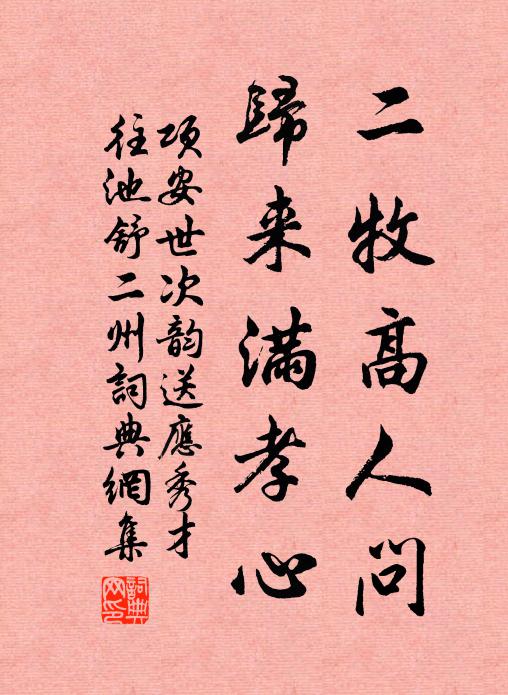 二牧高人問
歸来滿孝心
项安世次韵送應秀才
往池舒二州詞典網集
詞典
网印